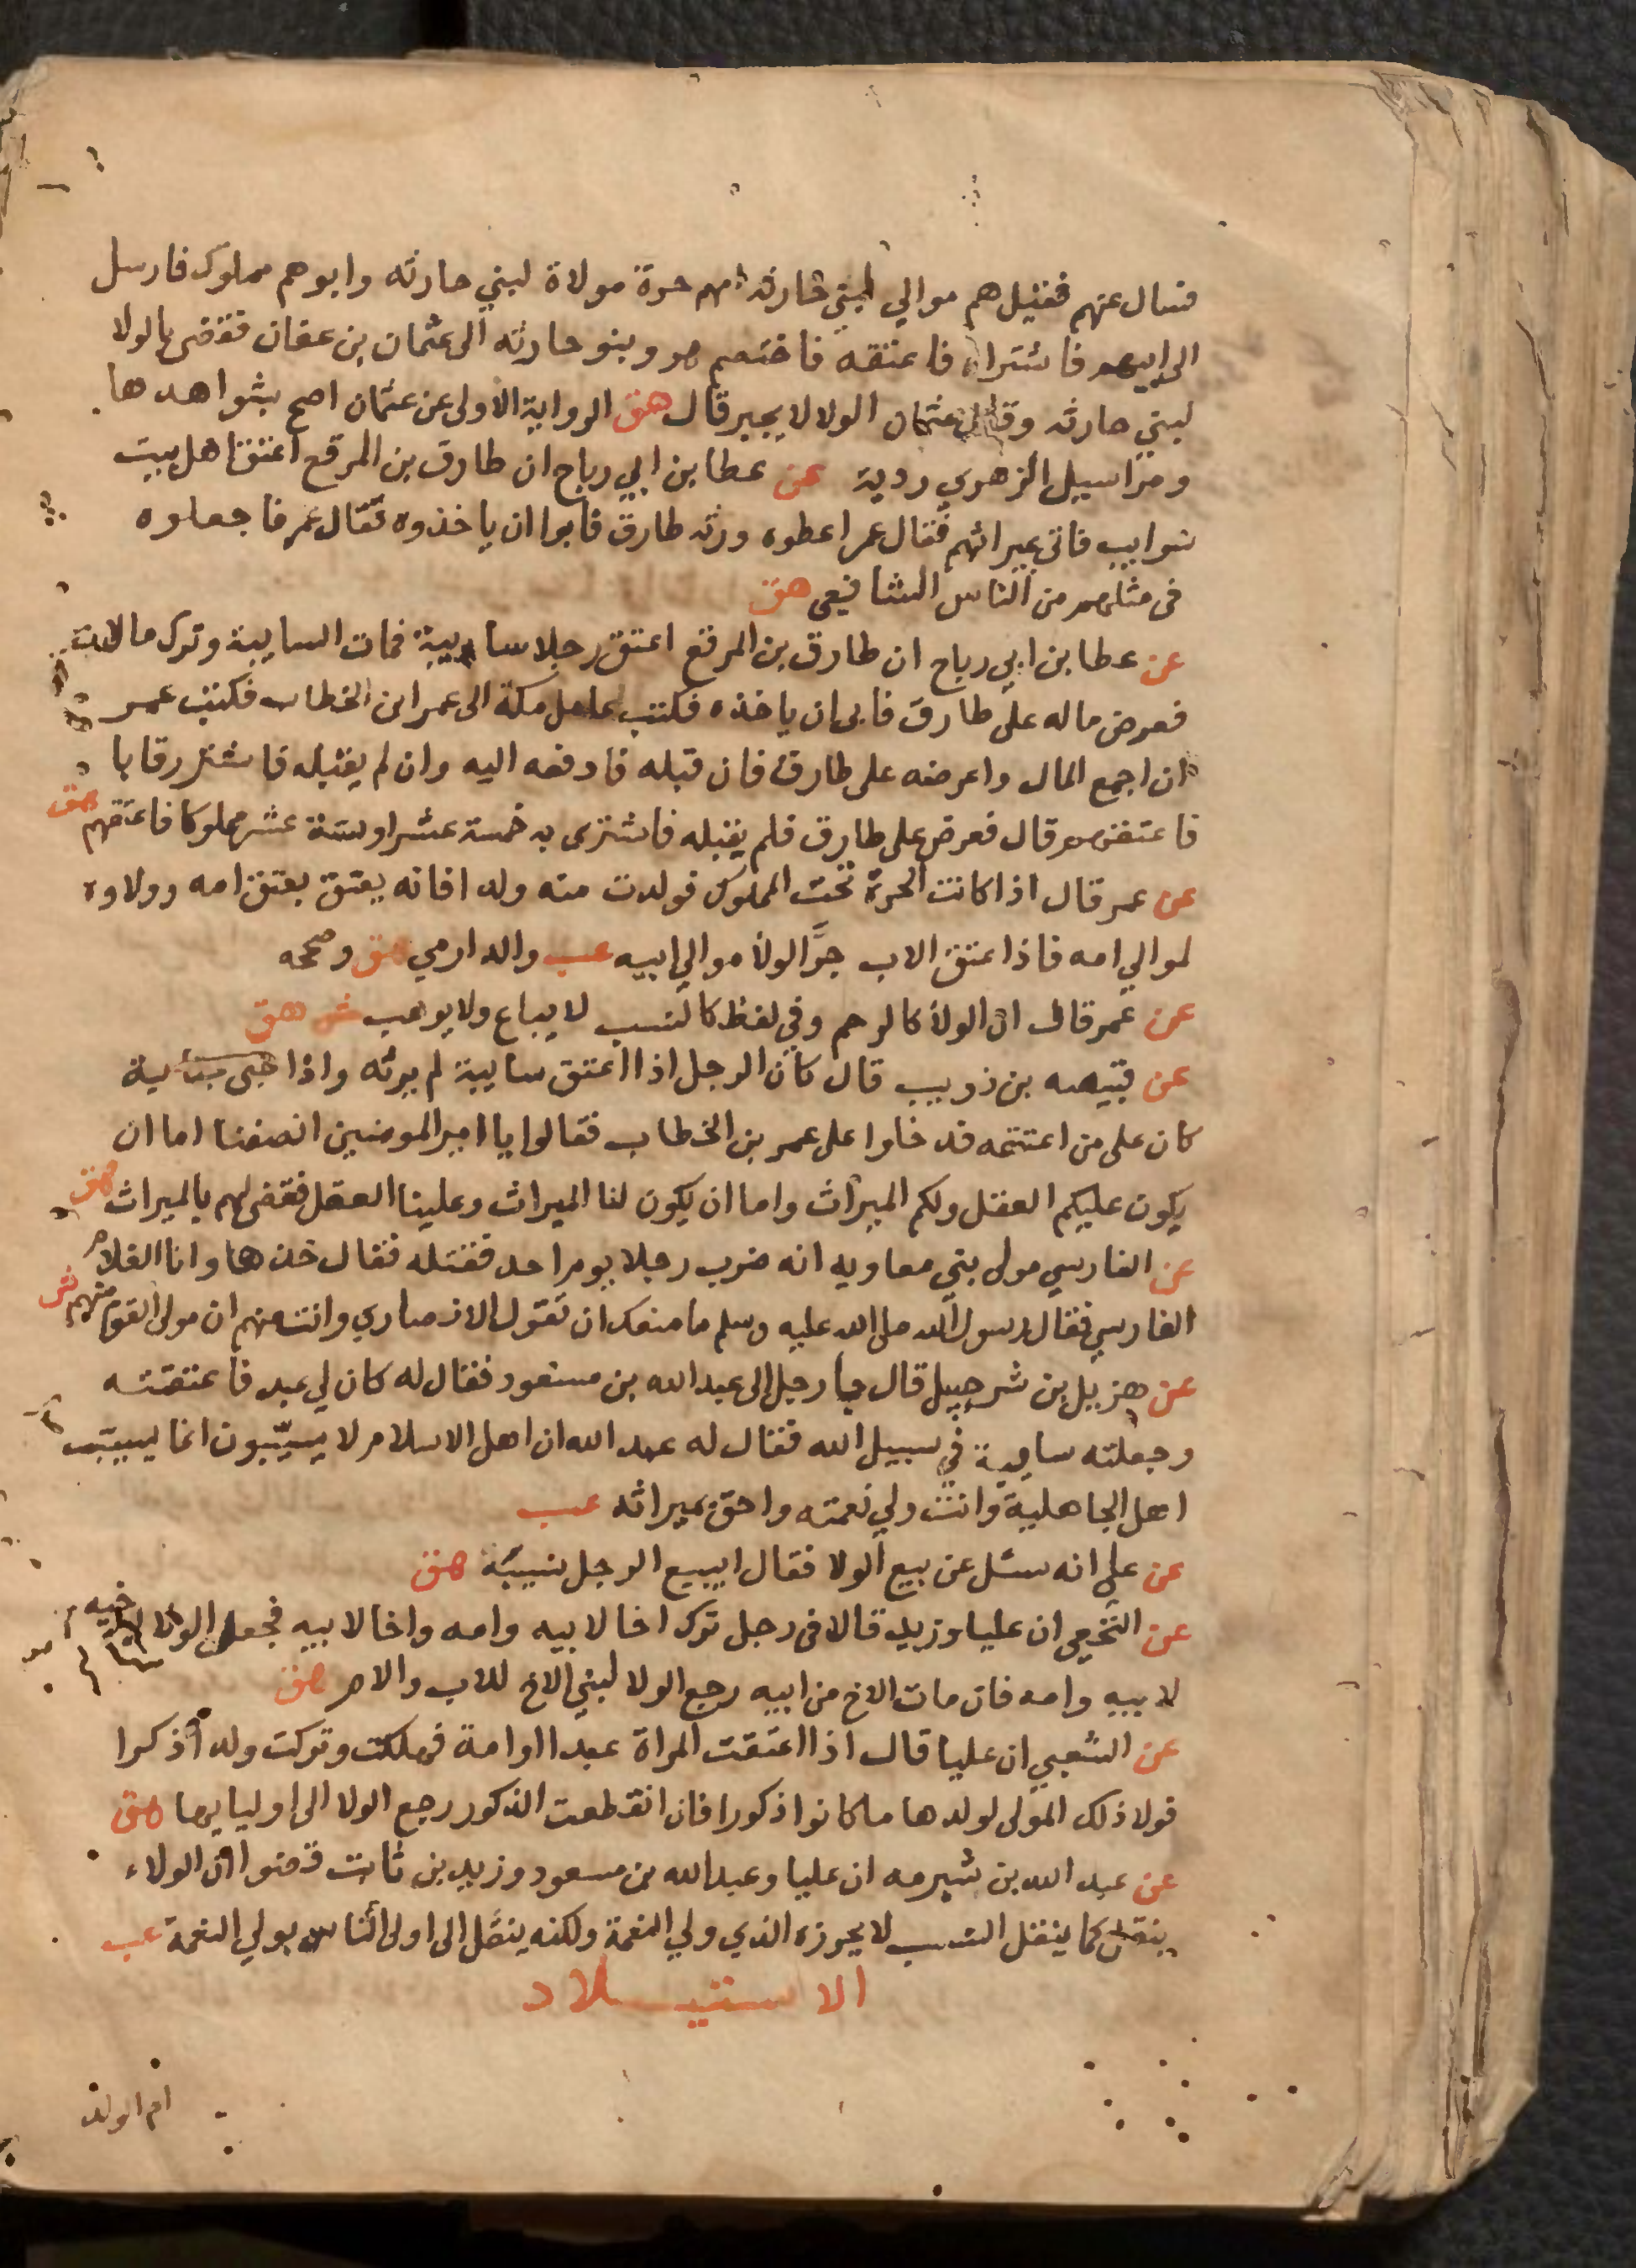 فسال عنهم فقيل هم موالي لبني حارثه امهم حرة مولاة لبني حارثه وابوهم مملوك فارسل
الى ابيهم فاشتراه فاعتقه فاختصم هو وبنو حارثه الى عثمان بن عفان فقضى بالولا
لبني حارثه وقال عثمان الولا لا يجر قال هق الرواية الاولى عن عثمان اصح بشواهدها
ومراسيل الزهري ردية عن عطا بن ابي رباح ان طارق بن المرقع اعتق اهل بيت
سوايب فاتى بميراثهم فقال عمر اعطوه ورثه طارق فابوا ان ياخذوه فقال عمر فاجعلوه
في مثلهم من الناس الشافعي هق
عن عطا بن ابي رباح ان طارق بن المرقع اعتق رجلا سايبة فمات السايبة وترك مالا
فعرض ماله على طارق فابى ان ياخذه فكتب عامل مكة الى عمر ابن الخطاب فكتب عمر
ان اجمع المال واعرضه على طارق فان قبله فادفعه اليه وان لم يقبله فاشتر رقابا
فاعتقهم قال فعرض على طارق فلم يقبله فاشترى به خمسة عشر او ستة عشر مملوكا فاعتقهم هق
عن عمر قال اذا كانت الحرة تحت المملوك فولدت منه ولدا فانه يعتق بعتق امه وولاوه
لموالي امه فاذا عتق الاب جرَّ الولا موالي ابيه عب والدارمي هق وصححه
عن عمر قال ان الولا كالرحم وفي لفظ كالنسب لا يباع ولا يوهب ش هق
عن قبيصه بن ذويب قال كان الرجل اذا اعتق سايبة لم يرثه واذا جنى جناية
كان على من اعتقه فدخلوا على عمر بن الخطاب فقالوا يا امير المومنين انصفنا اما ان
يكون عليكم العقل ولكم الميراث واما ان يكون لنا الميراث وعلينا العقل فقضى لهم بالميراث هق
عن الفارسي مولى بني معاويه انه ضرب رجلا يوم احد فقتله فقال خذها وانا الغلام
الفارسي فقال رسول الله صلى الله عليه وسلم ما منعك ان تقول الانصاري وانت منهم ان مولى القوم منهم ش
عن هزيل بن شرحبيل قال جا رجل الى عبد الله بن مسعود فقال له كان لي عبد فاعتقته
وجعلته سايبة في سبيل الله فقال له عبد الله ان اهل الاسلام لا يسيّبون انما يسيّب
اهل الجاهلية وانت ولي نعمته واحق بميراثه عب
عن علي انه سئل عن بيع الولا فقال ايبيع الرجل نسبه هق
عن النخعي ان عليا وزيد قالا في رجل ترك اخا لابيه وامه واخا لابيه فجعل الولا لاخيه
لابيه وامه فان مات الاخ من ابيه رجع الولا لبني الاخ للاب والام هق
عن الشعبي ان عليا قال اذا اعتقت المراة عبدا او امة فهلكت وتركت ولدا ذكرا
فولا ذلك المولى لولدها ما كانوا ذكورا فان انقطعت الذكور رجع الولا الى اوليايها هق
عن عبد الله بن شبرمه ان عليا وعبد الله بن مسعود وزيد بن ثابت قضوا ان الولاء
ينقل كما ينقل النسب لا يحوزه الذي ولي النعمة ولكنه ينقل الى اولى الناس بولي النعمة عب
الاستيلاد
ام الولد